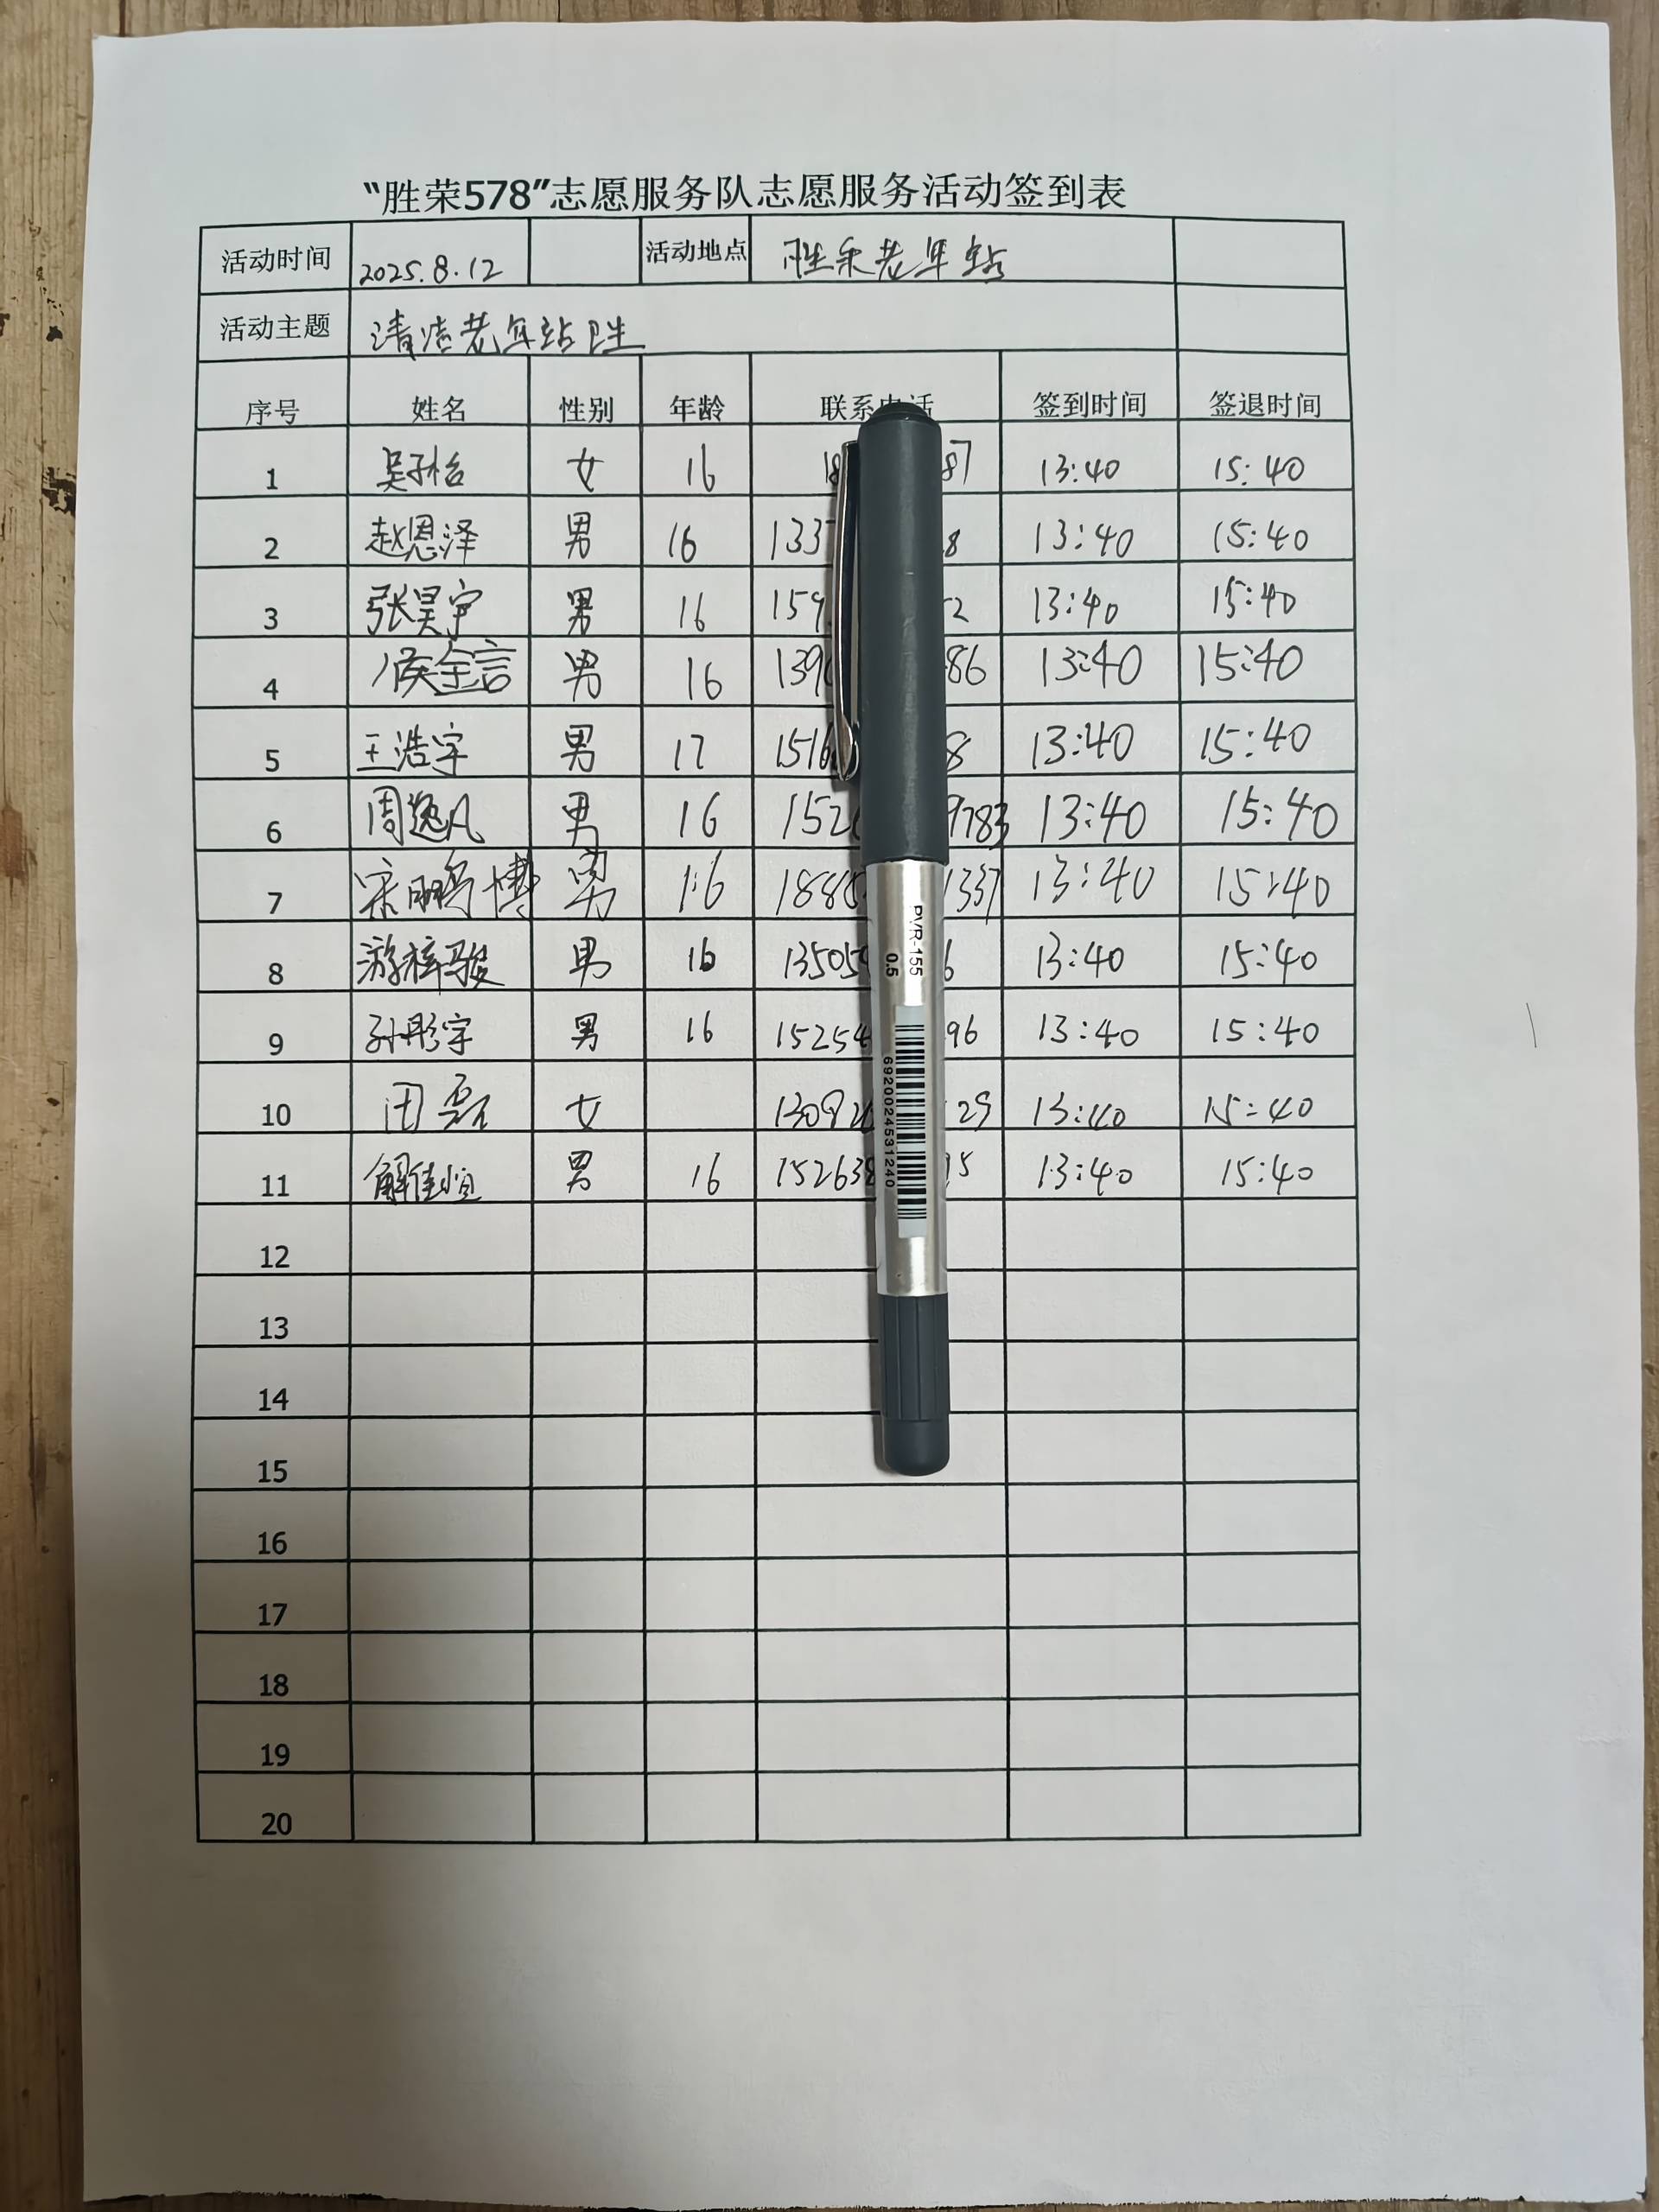 “胜荣578”志愿服务队志愿服务活动签到表
活动时间 2025.8.12 活动地点 胜采老年站
活动主题 清洁老年站卫生
序号 姓名 性别 年龄 联系电话 签到时间 签退时间
1 吴子怡 女 16 18 87 13:40 15:40
2 赵恩泽 男 16 133 8 13:40 15:40
3 张昊宇 男 16 159 2 13:40 15:40
4 侯全言 男 16 139 86 13:40 15:40
5 王浩宇 男 17 1516 8 13:40 15:40
6 周逸凡 男 16 152 9783 13:40 15:40
7 宋鹏博 男 16 1885 1337 13:40 15:40
8 游梓骏 男 16 13505 6 13:40 15:40
9 孙彤宇 男 16 15254 96 13:40 15:40
10 田磊 女 1309 29 13:40 15:40
11 解佳恒 男 16 152638 15 13:40 15:40
12
13
14
15
16
17
18
19
20
PVR-155
0.5
6920024531240